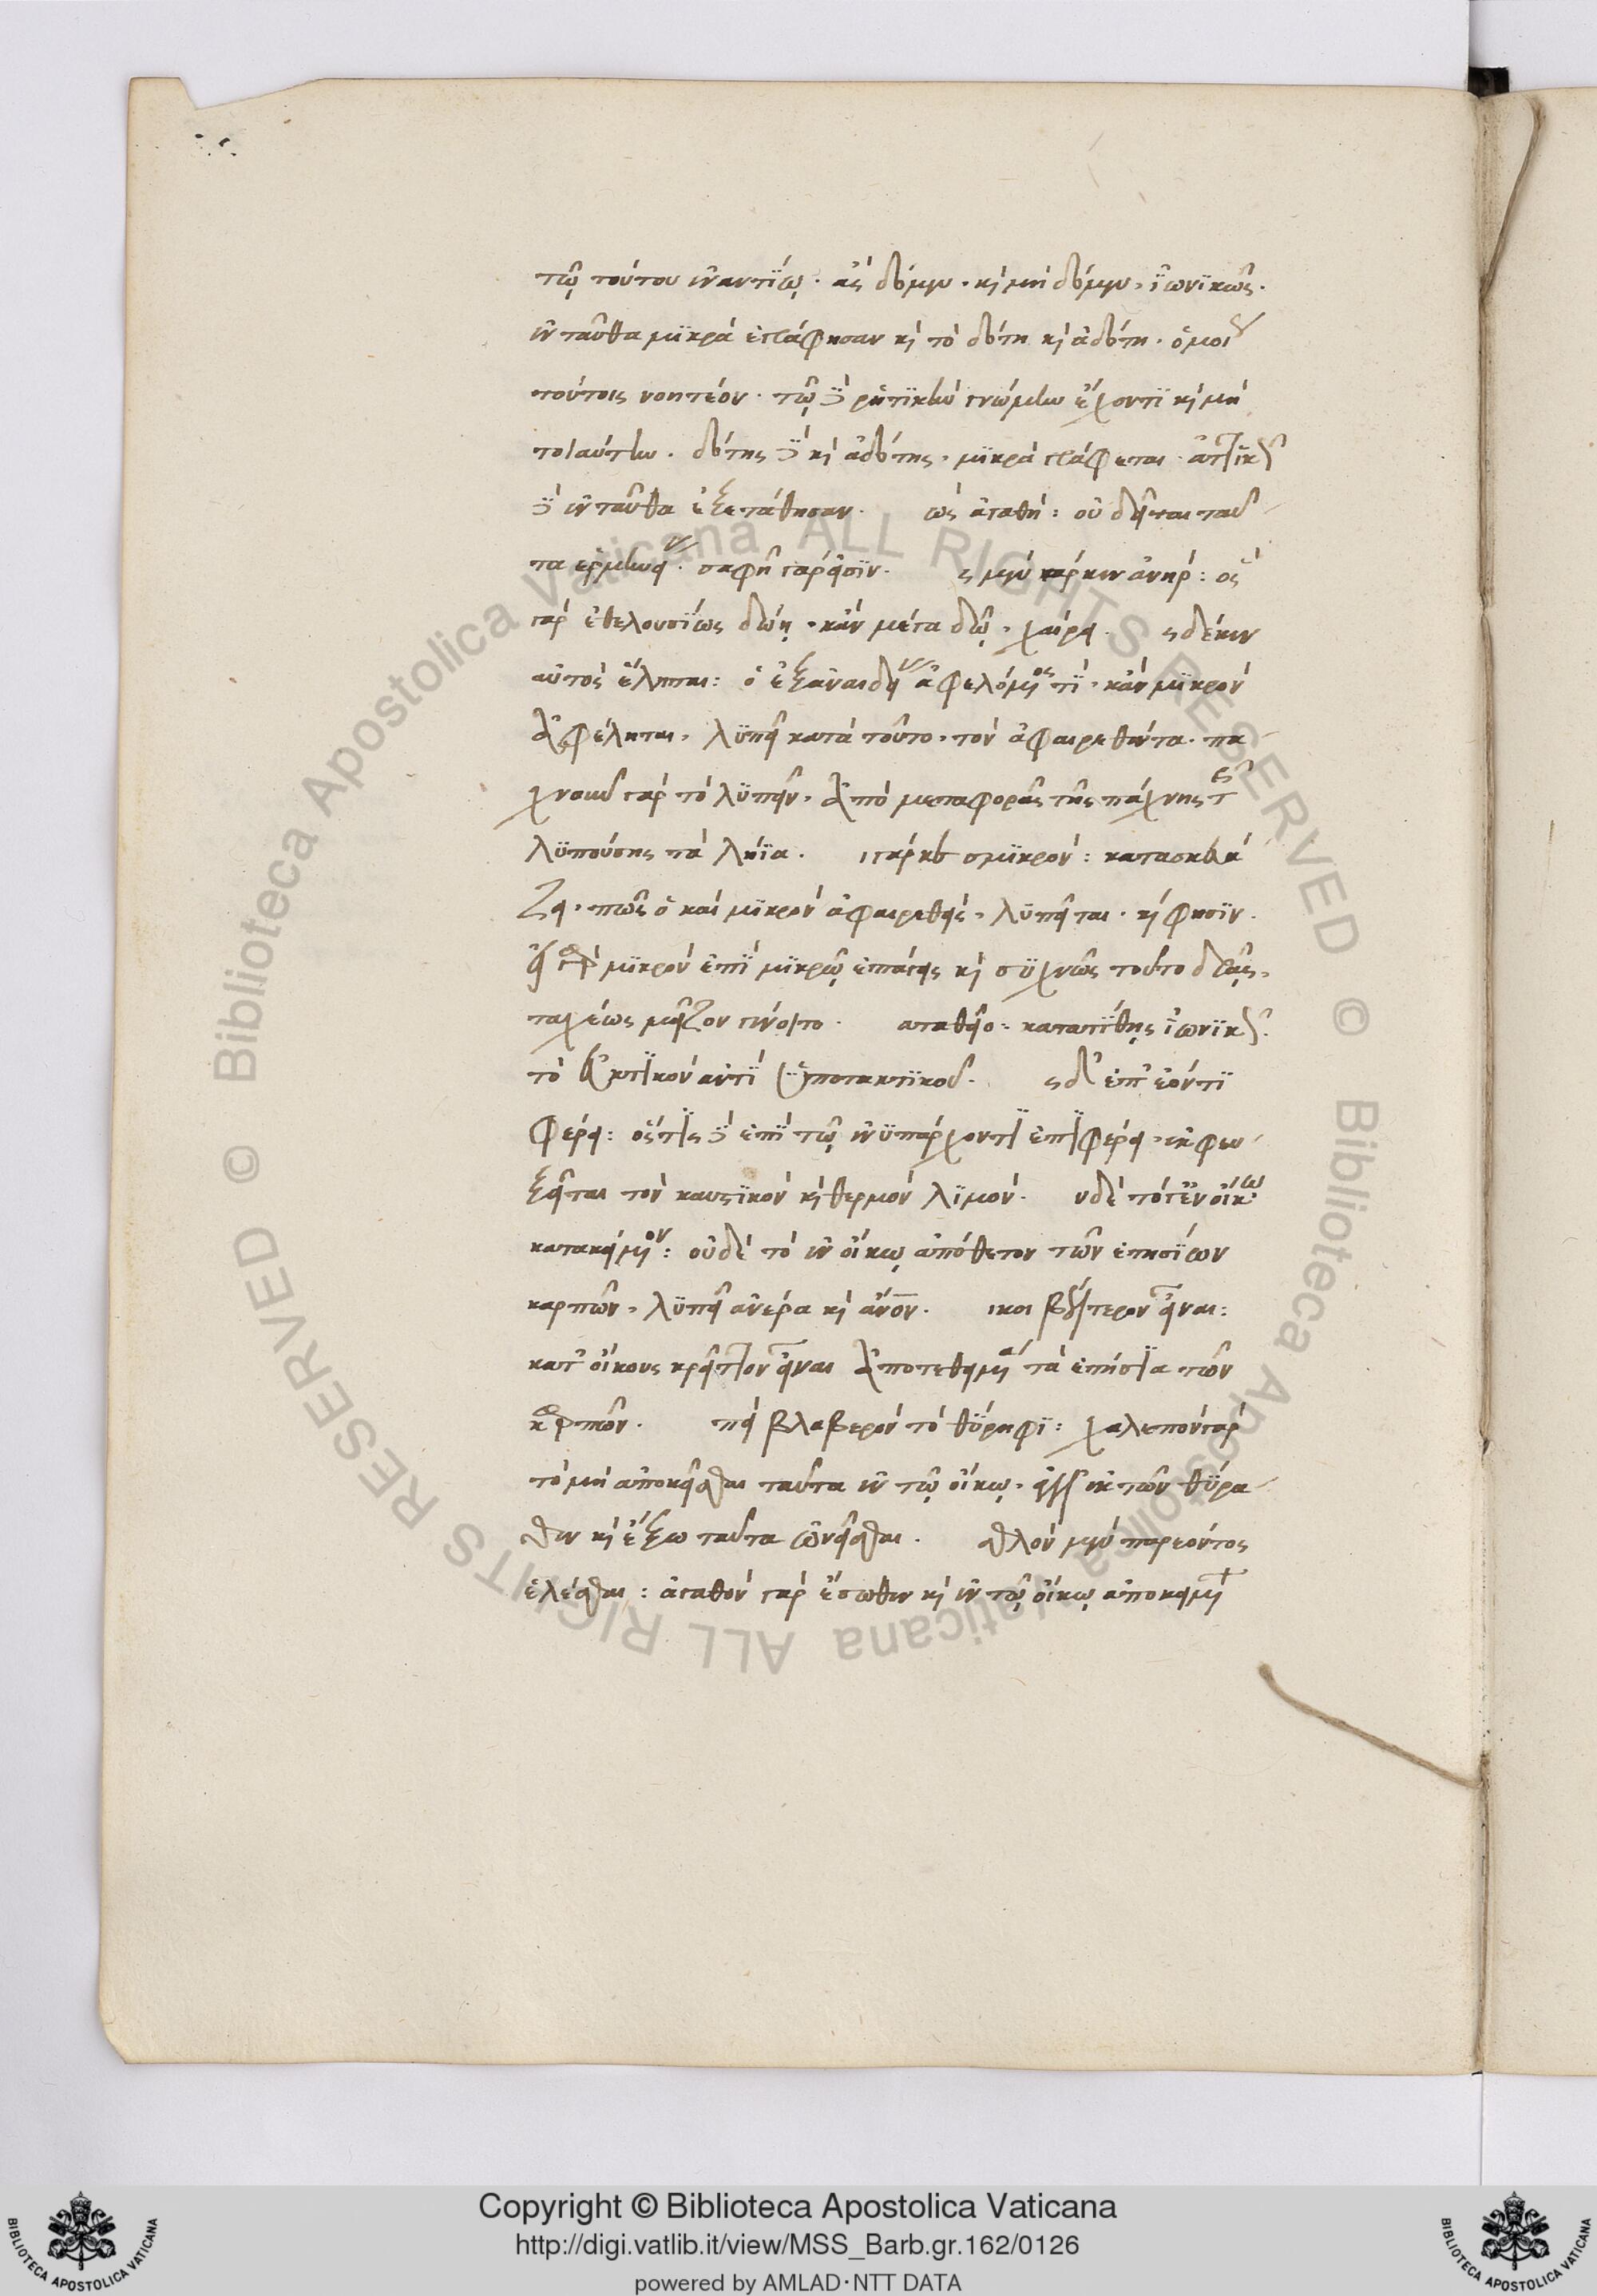 τῶ τούτου ἐναντίω. ἀεὶ δόμεν. καὶ μὴ δόμεν, ἰωνικῶς.
ἐνταῦθα μικρὰ ἐγράφησαν καὶ τὸ δότη καὶ ἀδότη. ὁμοί
τούτοις νοητέον. τῶ δὲ γνώμην ἔχοντι καὶ μὴ
τοιαύτην. δότης δὲ καὶ ἀδότης, μικρὰ γράφεται. ἀττικῶς
δὲ ἐνταῦθα ἐξετάθησαν. ὡς ἀγαθή: οὐ δεῖται ταῦ
τα ἑρμηνείας. σαφῆ γάρ εἰσιν. ς μὲν γάρ κεν ἀνήρ: ὃς
γὰρ ἐθελουσίως δώη, κἂν μέγα δῶ, χαίρει. ς δέ κεν
αὐτὸς ἕληται: ὁ ἐξ ἀναιδείας ἀφελόμενός τι, κἂν μικρὸν
ἀφέληται, λυπεῖ κατὰ τοῦτο, τὸν ἀφαιρεθέντα. πα
χνοῦν γὰρ τὸ λυπεῖν, ἀπὸ μεταφορᾶς τῆς πάχνης τῆς
λυπούσης τὰ λήϊα. ι γάρ κεν σμικρόν: κατασκευά
ζει, πῶς ὁ καὶ μικρὸν ἀφαιρεθείς, λυπεῖται. καὶ φησίν.
εἰ γὰρ μικρὸν ἐπὶ μικρῶ ἐπάγεις καὶ συχνῶς τοῦτο δρᾶς,
ταχέως μεῖζον γένοιτο. καταθεῖο: κατατίθης ἰωνικῶς.
τὸ εὐκτικὸν ἀντὶ ὑποτακτικοῦ. ς δ' ἐπ' ἐόντι
φέρει: ὅστις δὲ ἐπὶ τῶ ἐνυπάρχοντι ἐπιφέρει, ἐκφευ
ξεῖται τὸν καυστικὸν καὶ θερμὸν λιμόν. υδὲ τό γ' ἐν οἴκω
κατακείμενον: οὐδὲ τὸ ἐν οἴκω ἀπόθετον τῶν ἐτησίων
καρπῶν, λυπεῖ ἀνέρα καὶ ἄνον. ικοι βέλτερον εἶναι:
κατ' οἴκους κρεῖττον εἶναι ἀποτεθειμένα τὰ ἐτήσια τῶν
καρπῶν. πεὶ βλαβερὸν τὸ θύρηφι: χαλεπὸν γὰρ
τὸ μὴ ἀποκεῖσθαι ταῦτα ἐν τῶ οἴκω, ἀλλ' ἐκ τῶν θύρα
θεν καὶ ἔξω ταῦτα ὠνεῖσθαι. σθλὸν μὲν παρεόντος
ἑλέσθαι: ἀγαθὸν γὰρ ἔσωθεν καὶ ἐν τῶ οἴκω ἀποκειμέν
Copyright © Biblioteca Apostolica Vaticana
http://digi.vatlib.it/view/MSS_Barb.gr.162/0126
powered by AMLAD·NTT DATA